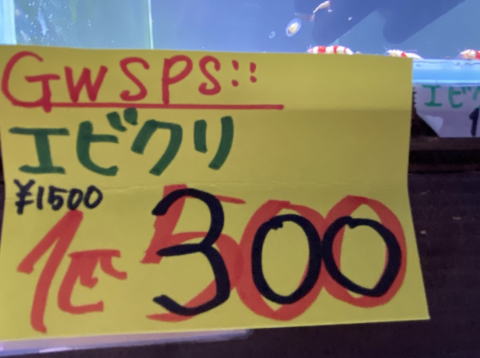 GWSPS!!
エビクリ
¥1500
1匹 300
エビク